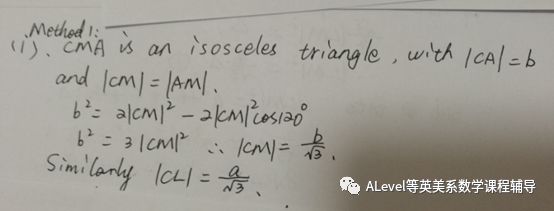 Method 1:
(i). CMA is an isosceles triangle, with |CA|=b
and |CM|=|AM|.
b²= 2|CM|² - 2|CM|²cos120°
b²= 3|CM|² ∴ |CM|= b/√3.
Similarly |CL|= a/√3.
ALevel等英美系数学课程辅导